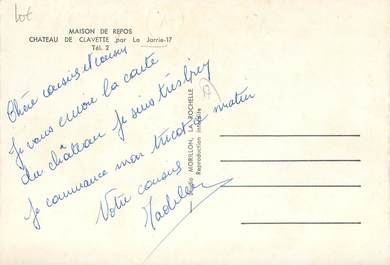 lot
MAISON DE REPOS
CHATEAU DE CLAVETTE par La Jarrie-17
Tél. 2
Chère cousine et cousin
Je vous envoie la carte
du château je suis très bien
je commance mon tricot matin
Votre cousine
Madeleine
17
Studio MORILLON, LA ROCHELLE
Reproduction interdite